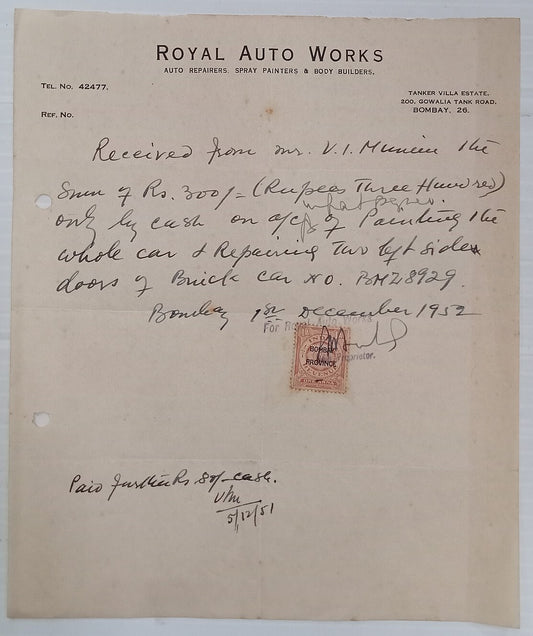 ROYAL AUTO WORKS
AUTO REPAIRERS, SPRAY PAINTERS & BODY BUILDERS.
TEL. NO. 42477.
TANKER VILLA ESTATE.
200, GOWALIA TANK ROAD.
BOMBAY, 26.
REF. NO.
Received from mr. V. I. Munim the
Sum of Rs. 300/- (Rupees Three Hundred)
only by cash on a/c of Painting the
whole car & Repairing Two left side
doors of Buick car No. BMZ8929.
Bombay 1st December 1952
For Royal Auto Works
Proprietor.
INDIA
BOMBAY
PROVINCE
REVENUE
ONE ANNA
Paid further Rs 80/- cash.
5/12/51